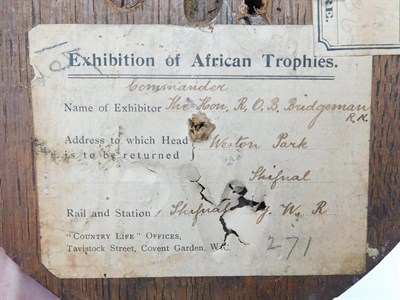 Exhibition of African Trophies.
Commander
Name of Exhibitor The Hon. R. O. B. Bridgeman
R.N.
Address to which Head Weston Park
is to be returned
Shifnal
Rail and Station Shifnal G. W. R
"COUNTRY LIFE" OFFICES,
Tavistock Street, Covent Garden, W.C.
271